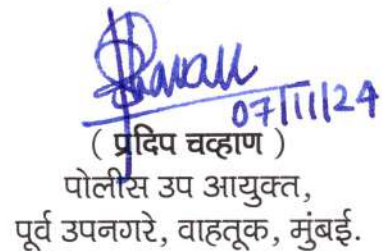 07/11/24
( प्रदिप चव्हाण )
पोलीस उप आयुक्त,
पूर्व उपनगरे, वाहतूक, मुंबई.